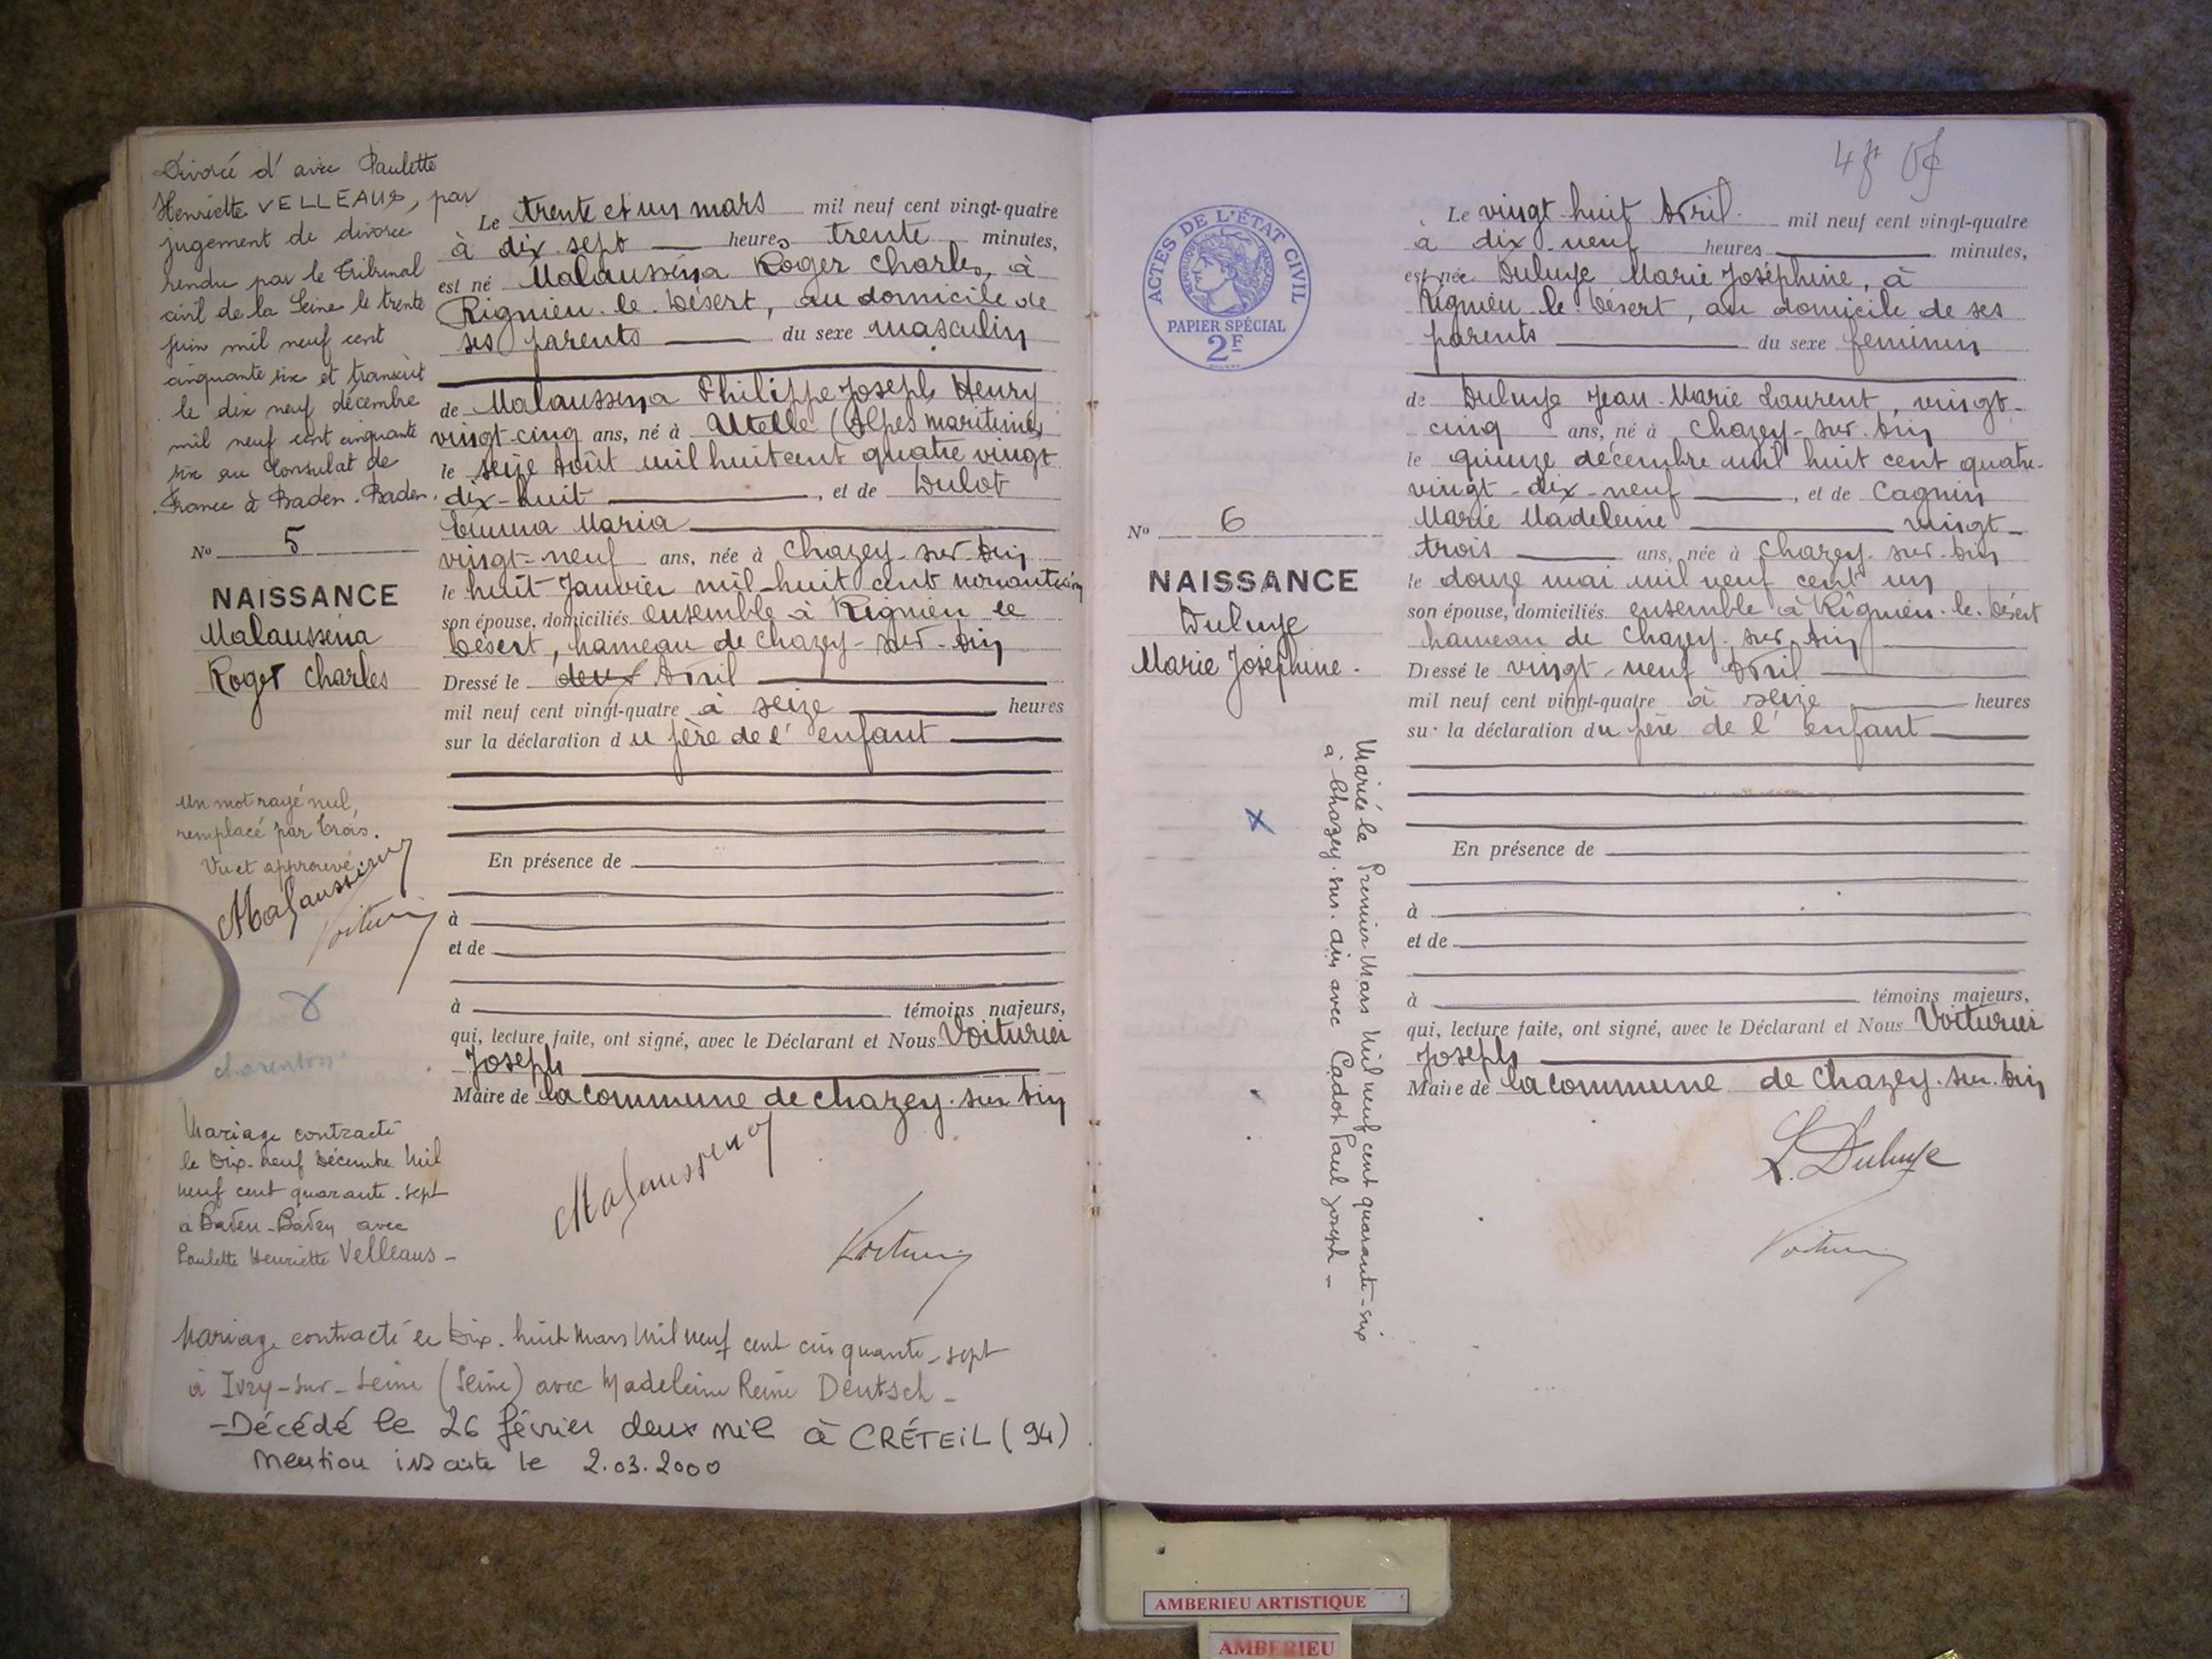 Divorcé d'avec Paulette
Henriette VELLEAUS, par
jugement de divorce
rendu par le Tribunal
civil de la Seine le trente
juin mil neuf cent
cinquante six et transcrit
le dix neuf décembre
mil neuf cent cinquante
six au Consulat de
France à Baden-Baden.
No 5
NAISSANCE
Malausséna
Roger Charles
Un mot rayé nul,
remplacé par trois.
Vu et approuvé
Malaussena
Voiturier
charenton
Mariage contracté
le Dix-neuf Décembre Mil
neuf cent quarante-sept
à Baden-Baden avec
Paulette Henriette Velleaus -
Le trente et un mars mil neuf cent vingt-quatre
à dix-sept heures trente minutes,
est né Malausséna Roger Charles, à
Rignieu-le-Désert, au domicile de
ses parents du sexe masculin
de Malausséna Philippe Joseph Henry
vingt-cinq ans, né à Utelle (Alpes maritimes)
le seize Août mil huit cent quatre vingt
dix-huit, et de Dulot
Emma Maria
vingt-neuf ans, née à Chazey-sur-Ain
le huit Janvier mil-huit cent
son épouse, domiciliés ensemble à Rignieu le
Désert, hameau de Chazey-sur-Ain
Dressé le deux Avril
mil neuf cent vingt-quatre à seize heures
sur la déclaration du père de l'enfant
En présence de
à
et de
à témoins majeurs,
qui, lecture faite, ont signé, avec le Déclarant et Nous Voiturier
Joseph
Maire de la commune de Chazey-sur Ain
Malaussena
Voiturier
Mariage contracté le Dix-huit Mars Mil neuf cent cinquante-sept
à Ivry-sur-Seine (Seine) avec Madeleine Reine Deutsch -
-Décédé le 26 février deux mil à CRÉTEIL (94)
Mention inscrite le 2.03.2000
ACTES DE L'ÉTAT CIVIL
RÉPUBLIQUE FRANÇAISE
PAPIER SPÉCIAL
2F
No 6
NAISSANCE
Duluye
Marie Joséphine.
Mariée le Premier Mars Mil neuf cent quarante-six
à Chazey-sur-Ain avec Cadot Paul Joseph -
Le vingt-huit Avril mil neuf cent vingt-quatre
à dix-neuf heures minutes,
est née Duluye Marie Joséphine, à
Rignieu-le-Désert, au domicile de ses
parents du sexe feminin
de Duluye Jean-Marie Laurent, vingt-
cinq ans, né à Chazey-sur-Ain
le quinze décembre mil huit cent quatre-
vingt-dix-neuf, et de Cagnin
Marie Madeleine vingt-
trois ans, née à Chazey-sur-Ain
le douze mai mil neuf cent un
son épouse, domiciliés ensemble à Rignieu-le-Désert
hameau de Chazey-sur-Ain
Dressé le vingt-neuf Avril
mil neuf cent vingt-quatre à seize heures
sur la déclaration du père de l'enfant
En présence de
à
et de
à témoins majeurs,
qui, lecture faite, ont signé, avec le Déclarant et Nous Voiturier
Joseph
Maire de la commune de Chazey-sur-Ain
L. Duluye
Voiturier
AMBERIEU ARTISTIQUE
AMBERIEU